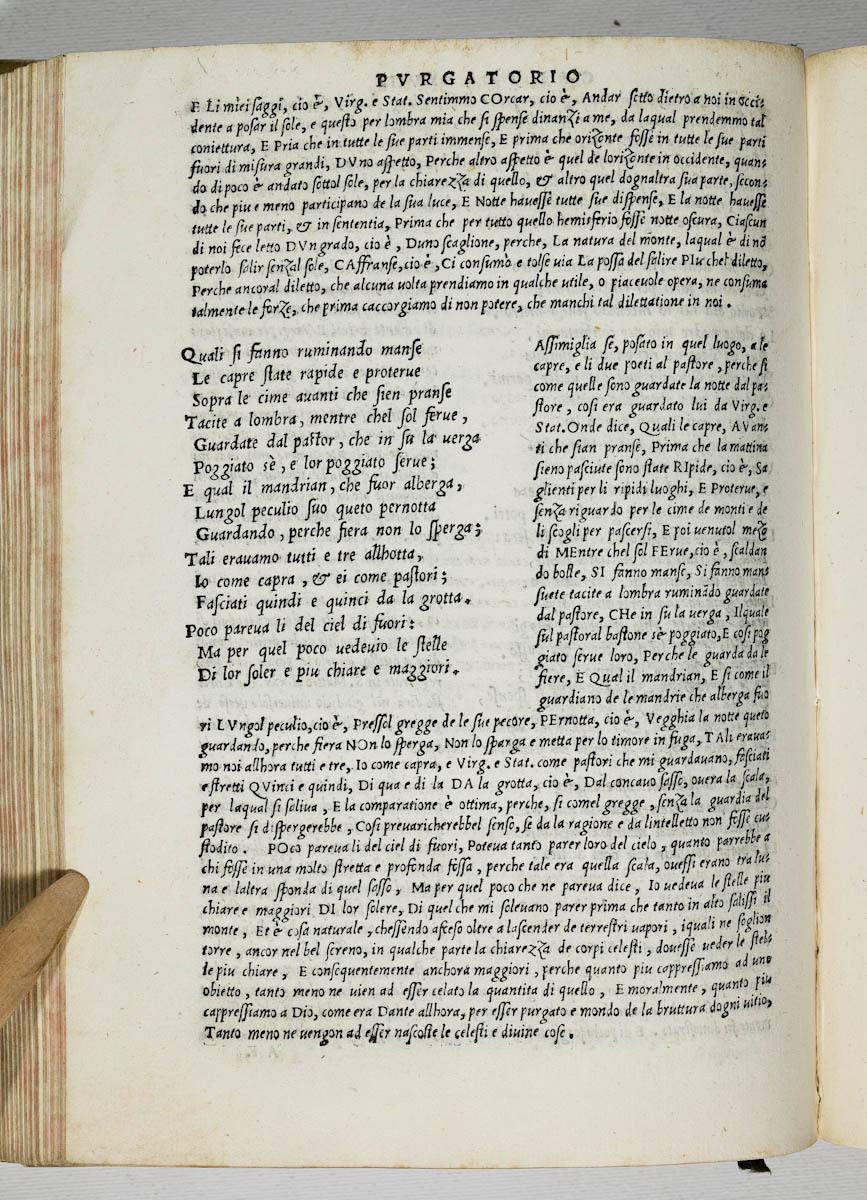 PVRGATORIO
E Li miei saggi, cio è, Virg. e Stat. Sentimmo COrcar, cio è, Andar sotto dietro a noi in occi-
dente a posar il sole, e questo per lombra mia che si spense dinanzi a me, da laqual prendemmo tal
coniettura, E Pria che in tutte le sue parti immense, E prima che orizonte fosse in tutte le sue parti
fuori di misura grandi, DVno aspetto, Perche altro aspetto è quel de lorizonte in occidente, quan-
do di poco è andato sottol sole, per la chiarezza di quello, & altro quel dognaltra sua parte, secon-
do che piu e meno participano de la sua luce, E Notte havesse tutte sue dispense, E la notte havesse
tutte le sue parti, & in sententia, Prima che per tutto quello hemisferio fosse notte oscura, Ciascun
di noi fece letto DVn grado, cio è, Duno scaglione, perche, La natura del monte, laqual è di nõ
poterlo salir senzal sole, CAffranse, cio è, Ci consumò e tolse via La possa del salire PIu chel diletto,
Perche ancoral diletto, che alcuna volta prendiamo in qualche utile, o piacevole opera, ne consuma
talmente le forze, che prima caccorgiamo di non potere, che manchi tal dilettatione in noi.
Quali si fanno ruminando manse
Le capre state rapide e proterue
Sopra le cime auanti che sien pranse
Tacite a lombra, mentre chel sol ferue,
Guardate dal pastor, che in su la uerga
Poggiato sè, e lor poggiato serue;
E qual il mandrian, che fuor alberga,
Lungol peculio suo queto pernotta
Guardando, perche fiera non lo sperga;
Tali erauamo tutti e tre allhotta,
Io come capra, & ei come pastori;
Fasciati quindi e quinci da la grotta.
Poco pareua li del ciel di fuori:
Ma per quel poco uedeuio le stelle
Di lor soler e piu chiare e maggiori.
Assimiglia se, posato in quel luogo, a le
capre, e li due poeti al pastore, perche si
come quelle sono guardate la notte dal pa-
store, cosi era guardato lui da Virg. e
Stat. Onde dice, Quali le capre, AVan-
ti che sian pranse, Prima che la mattina
sieno pasciute sono state RIpide, cio è, Sa
glienti per li ripidi luoghi, E Proterue, e
senza riguardo per le cime de monti e de
li scogli per pascersi, E poi venutol mezo
di MEntre chel sol FErue, cio è, scaldan
do bolle, SI fanno manse, Si fanno man-
suete tacite a lombra ruminãdo guardate
dal pastore, CHe in su la verga, Ilquale
sul pastoral bastone sè poggiato, E cosi pog
giato serue loro, Perche le guarda da le
fiere, E Qual il mandrian, E si come il
guardiano de le mandrie che alberga fuo
ri LVngol peculio, cio è, Pressol gregge de le sue pecore, PErnotta, cio è, Vegghia la notte queto
guardando, perche fiera NOn lo sperga, Non lo sparga e metta per lo timore in fuga, TAli eraua-
mo noi allhora tutti e tre, Io come capra, e Virg. e Stat. come pastori che mi guardavano, fasciati
e stretti QVinci e quindi, Di qua e di la DA la grotta, cio è, Dal concauo sasso, overa la scala,
per laqual si saliua, E la comparatione è ottima, perche, si comel gregge, senza la guardia del
pastore si dispergerebbe, Cosi prevaricherebbel senso, se da la ragione e da lintelletto non fosse cu-
stodito. POco pareua li del ciel di fuori, Poteva tanto parer loro del cielo, quanto parrebbe a
chi fosse in una molto stretta e profonda fossa, perche tale era quella scala, ovessi erano tra lu-
na e laltra sponda di quel sasso, Ma per quel poco che ne pareva dice, Io vedeva le stelle piu
chiare e maggiori DI lor solere, Di quel che mi solevano parer prima che tanto in alto salissi il
monte, Et è cosa naturale, chessendo asceso oltre a lascender de terrestri vapori, iquali ne soglion
torre, ancor nel bel sereno, in qualche parte la chiarezza de corpi celesti, dovesse veder le stel-
le piu chiare, E consequentemente anchora maggiori, perche quanto piu cappressiamo ad uno
obietto, tanto meno ne uien ad esser celato la quantita di quello, E moralmente, quanto piu
cappressiamo a Dio, come era Dante allhora, per esser purgato e mondo de la bruttura dogni uitio,
Tanto meno ne vengon ad esser nascoste le celesti e divine cose.